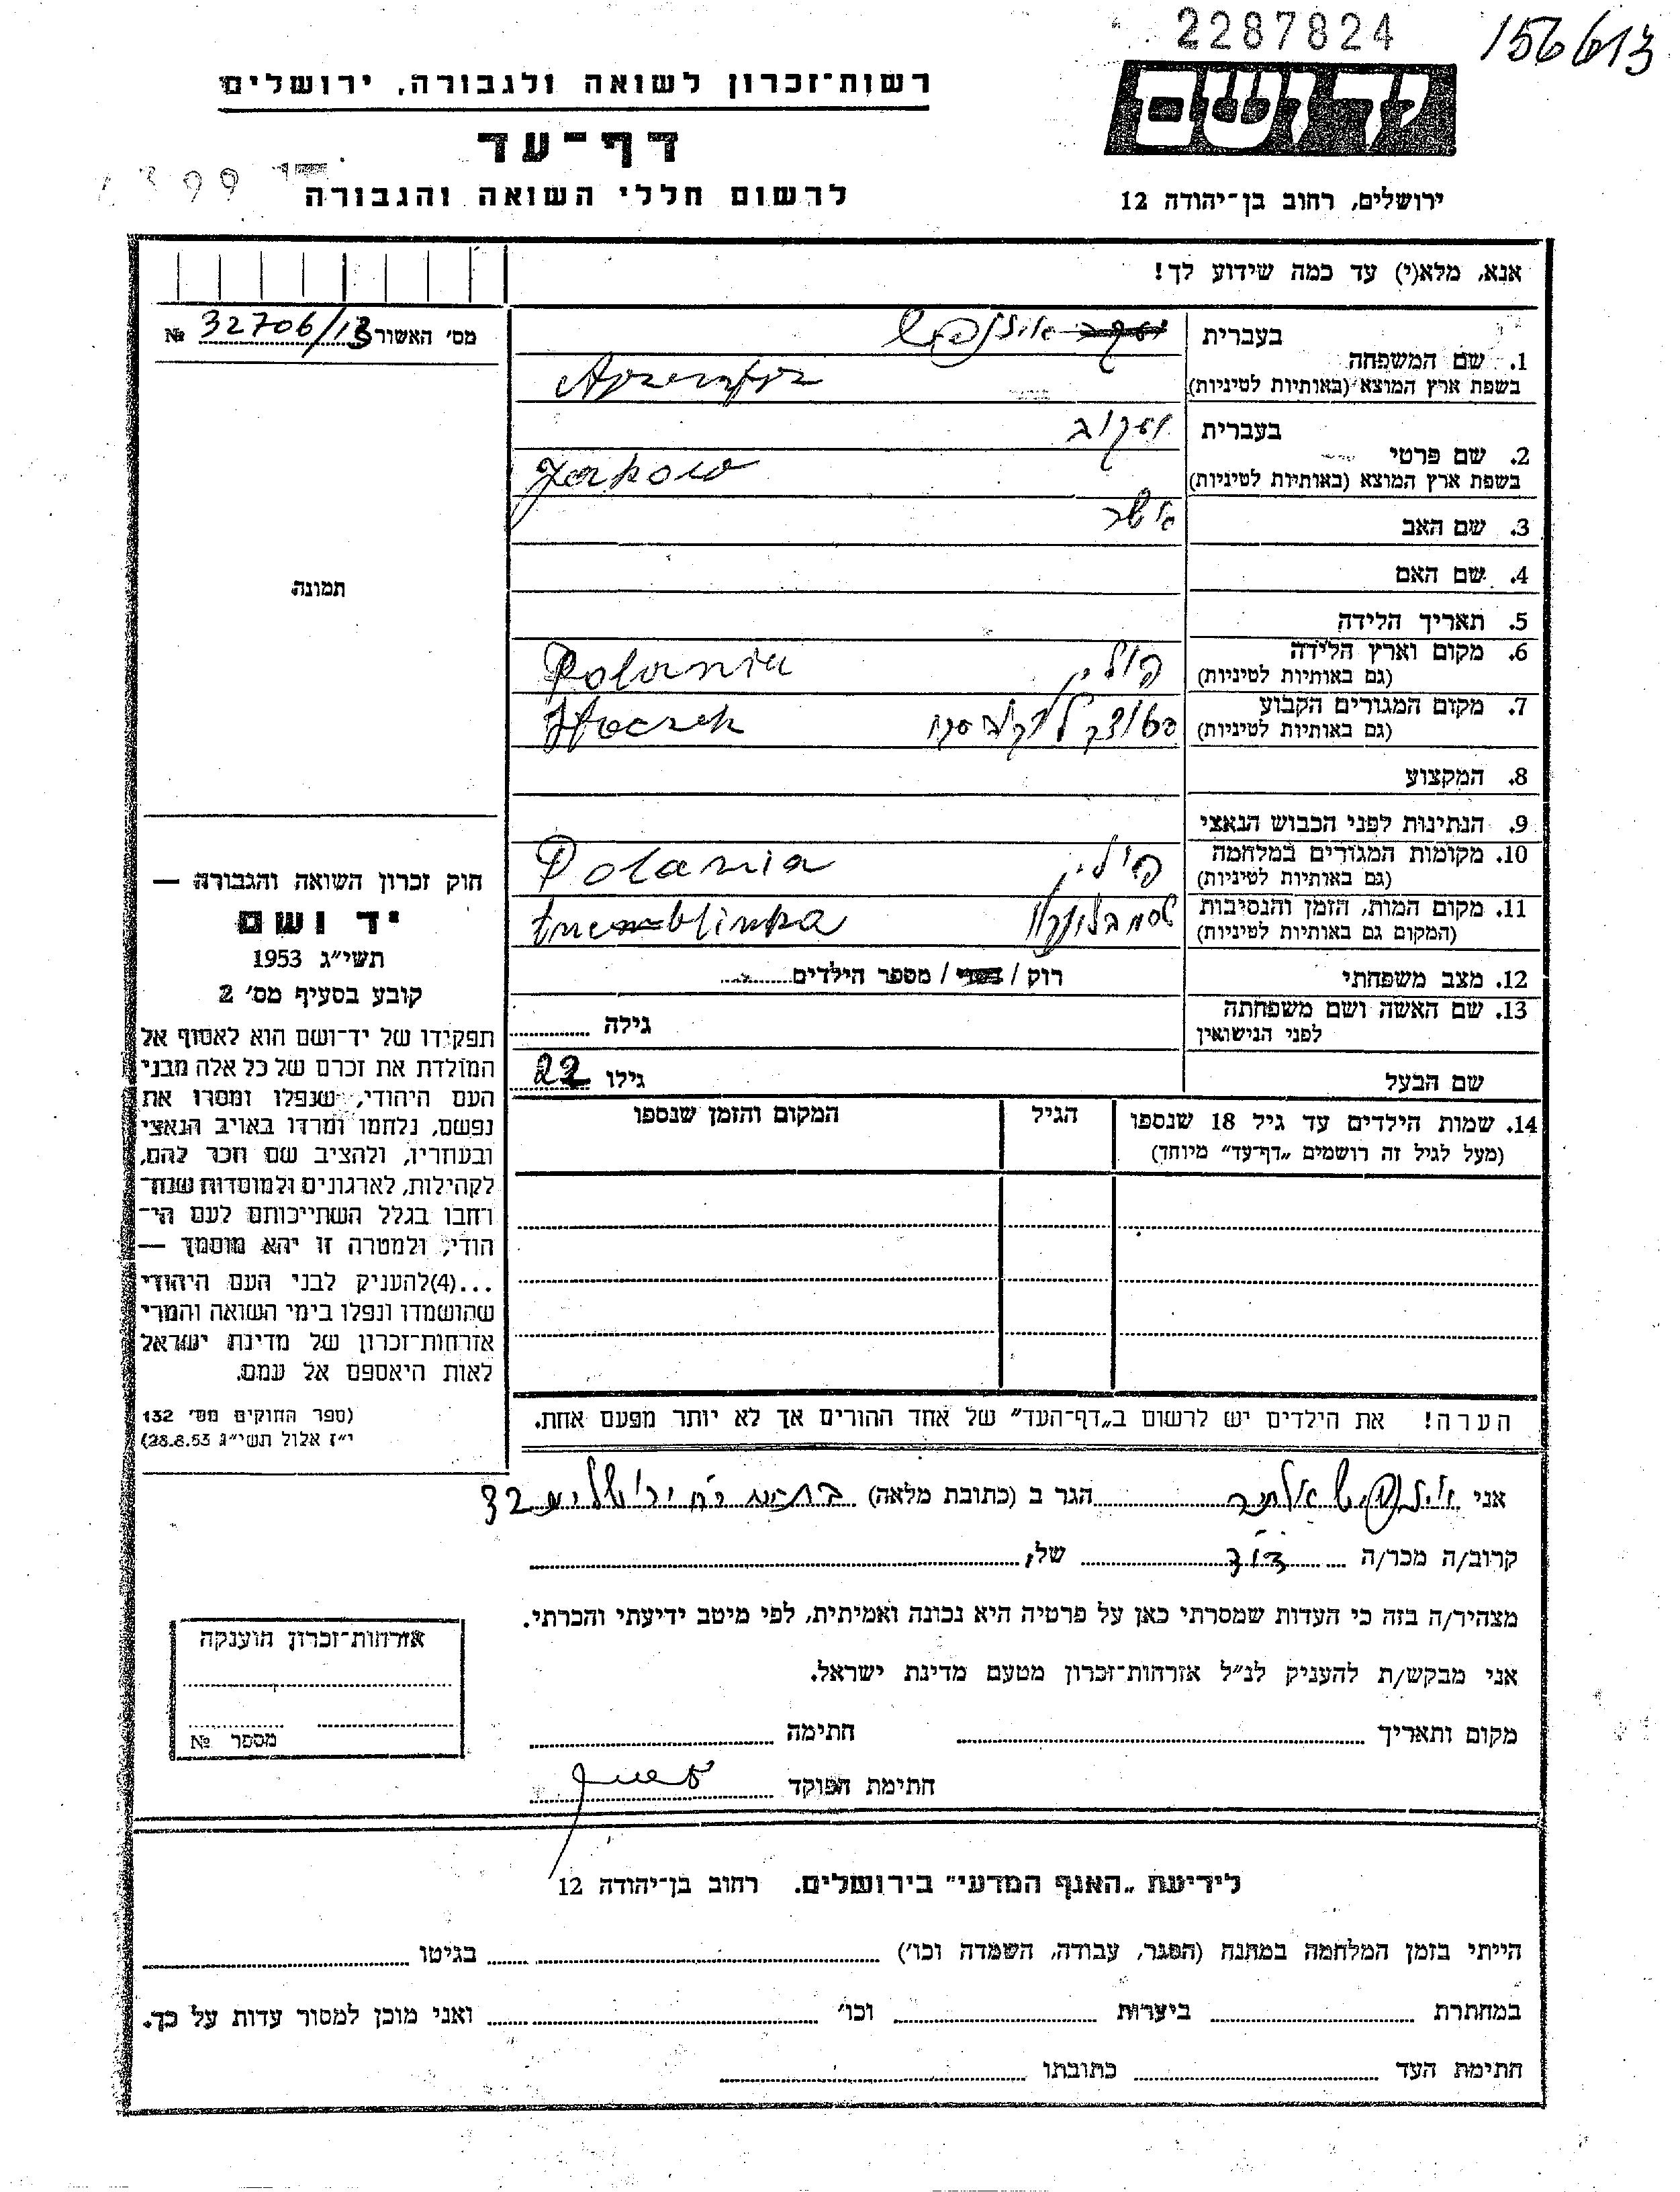 2287824
156613
יד ושם
רשות־זכרון לשואה ולגבורה, ירושלים
דף־עד
לרשום חללי השואה והגבורה
ירושלים, רחוב בן־יהודה 12
אנא, מלא(י) עד כמה שידוע לך!
מס׳ האשור 32706/13 №
1. שם המשפחה
בעברית
בשפת ארץ המוצא (באותיות לטיניות)
2. שם פרטי
בעברית יעקוב
בשפת ארץ המוצא (באותיות לטיניות) Jakow
3. שם האב אשר
4. שם האם
5. תאריך הלידה
6. מקום וארץ הלידה פולין Polania
(גם באותיות לטיניות)
7. מקום המגורים הקבוע
(גם באותיות לטיניות)
8. המקצוע
9. הנתינות לפני הכבוש הנאצי
10. מקומות המגורים במלחמה פולין Polania
(גם באותיות לטיניות)
11. מקום המות, הזמן והנסיבות
(המקום גם באותיות לטיניות)
12. מצב משפחתי רוק / נשוי / מספר הילדים
13. שם האשה ושם משפחתה
לפני הנישואין גילה
שם הבעל גילו 22
14. שמות הילדים עד גיל 18 שנספו
(מעל לגיל זה רושמים „דף־עד״ מיוחד)
הגיל
המקום והזמן שנספו
הערה! את הילדים יש לרשום ב„דף־העד״ של אחד ההורים אך לא יותר מפעם אחת.
תמונה
חוק זכרון השואה והגבורה —
יד ושם
תשי״ג 1953
קובע בסעיף מס׳ 2
תפקידו של יד־ושם הוא לאסוף אל
המולדת את זכרם של כל אלה מבני
העם היהודי, שנפלו ומסרו את
נפשם, נלחמו ומרדו באויב הנאצי
ובעוזריו, ולהציב שם וזכר להם,
לקהילות, לארגונים ולמוסדות שנח־
רבו בגלל השתייכותם לעם הי־
הודי, ולמטרה זו יהא מוסמך —
...(4)להעניק לבני העם היהודי
שהושמדו ונפלו בימי השואה והמרי
אזרחות־זכרון של מדינת ישראל
לאות היאספם אל עמם.
(ספר החוקים מס׳ 132
י״ז אלול תשי״ג 28.8.53)
אני הגר ב (כתובת מלאה) 32
קרוב/ה מכר/ה דוד של
מצהיר/ה בזה כי העדות שמסרתי כאן על פרטיה היא נכונה ואמיתית, לפי מיטב ידיעתי והכרתי.
אני מבקש/ת להעניק לנ״ל אזרחות־זכרון מטעם מדינת ישראל.
מקום ותאריך חתימה
חתימת הפוקד
אזרחות־זכרון הוענקה
מספר №
לידיעת „האגף המדעי״ בירושלים. רחוב בן־יהודה 12
הייתי בזמן המלחמה במחנה (הסגר, עבודה, השמדה וכו׳) בגיטו
במחתרת ביערות וכו׳ ואני מוכן למסור עדות על כך.
חתימת העד כתובתו